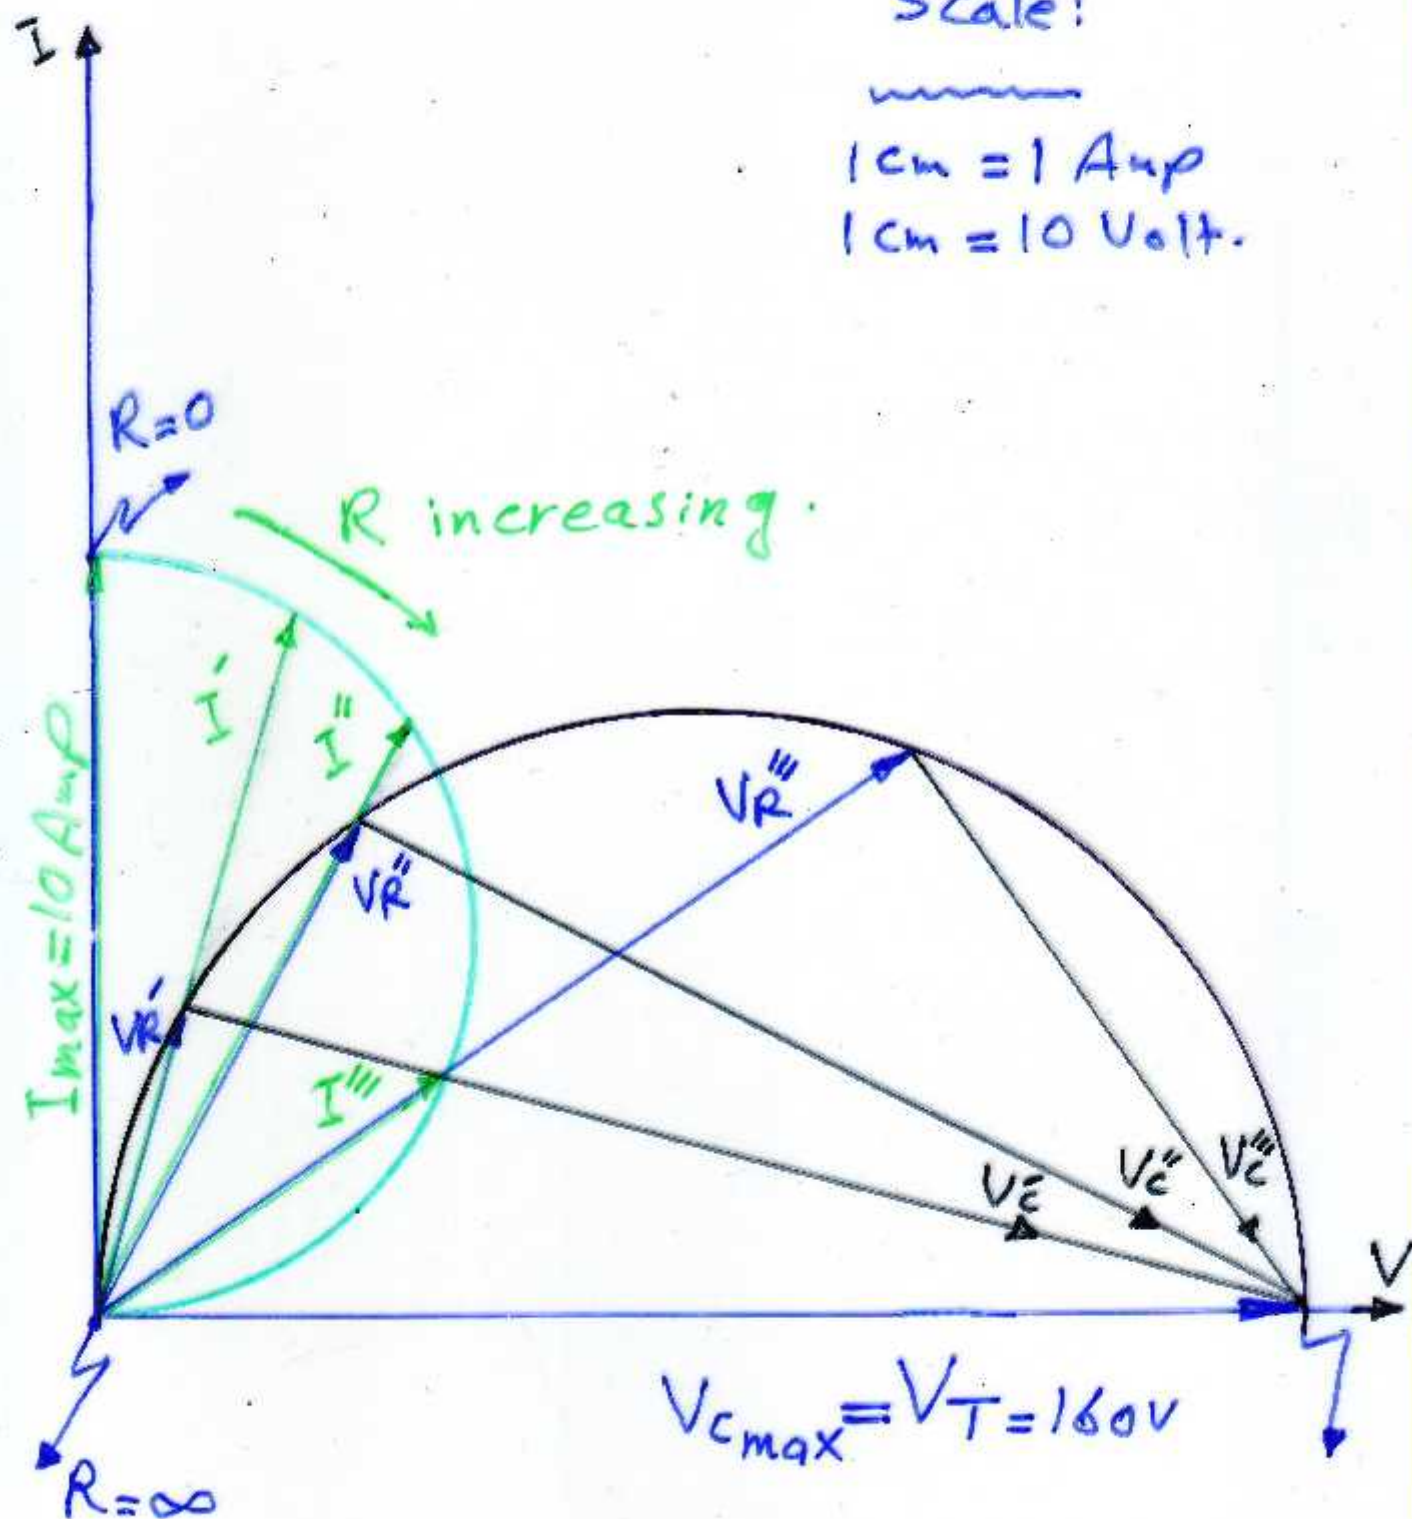 Scale:
I
1 cm = 1 Amp
1 cm = 10 Volt.
R=0
R increasing.
I'
I''
VR'''
Imax=10 Amp
VR''
VR'
I'''
Vc'
Vc''
Vc'''
V
Vcmax=VT=160V
R=∞